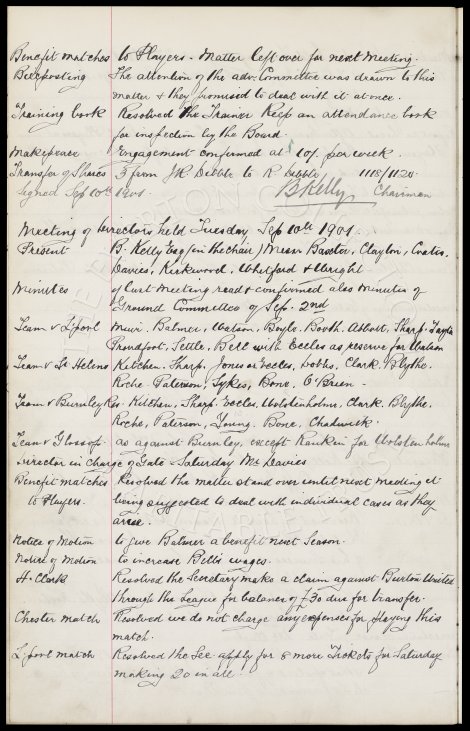 Benefit matches to Players - Matter left over for next Meeting.
Billposting The attention of the adv. Committee was drawn to this
matter & they promised to deal with it at once.
Training book Resolved the Trainer keep an attendance book
for inspection by the Board.
Makepeace Engagement confirmed at 10/- per week.
Transfer of Shares 3 from J R Dibble to R Dibble 1118/1120
Signed Sep 10th 1901. B Kelly Chairman
Meeting of Directors held Tuesday Sep 10th 1901.
Present B. Kelly Esq (in the chair) Messrs Baxter, Clayton, Coates,
Davies, Kirkwood, Whitford & Wright
Minutes of last Meeting read & confirmed also Minutes of
Ground Committee of Sep. 2nd
Team v L'pool Muir. Balmer, Watson, Boyle. Booth. Abbott, Sharp. Taylor
Proudfoot, Settle, Bell with Eccles as reserve for Watson
Team v St Helens Kitchen. Sharp. Jones or Eccles, Dobbs, Clark. Blythe.
Roche. Paterson, Sykes, Bone, O'Brien -
Team v Burnley Res. Kitchen, Sharp. Eccles. Wolstenholme, Clark. Blythe,
Roche, Paterson, Young. Bone, Chadwick.
Team v Glossop. as against Burnley, except Rankin for Wolstenholme
Director in Charge of Gate - Saturday Mr Davies
Benefit matches Resolved the matter stand over until next meeting it
to Players. being suggested to deal with individual cases as they
arise.
Notice of Motion to give Balmer a benefit next Season.
Notice of Motion to increase Bell's wages.
H. Clark Resolved the Secretary make a claim against Burton United
through the League for balance of £30 due for transfer.
Chester match Resolved we do not charge any expenses for playing this
match.
L'pool match Resolved the Sec. apply for 8 more Tickets for Saturday
making 20 in all.